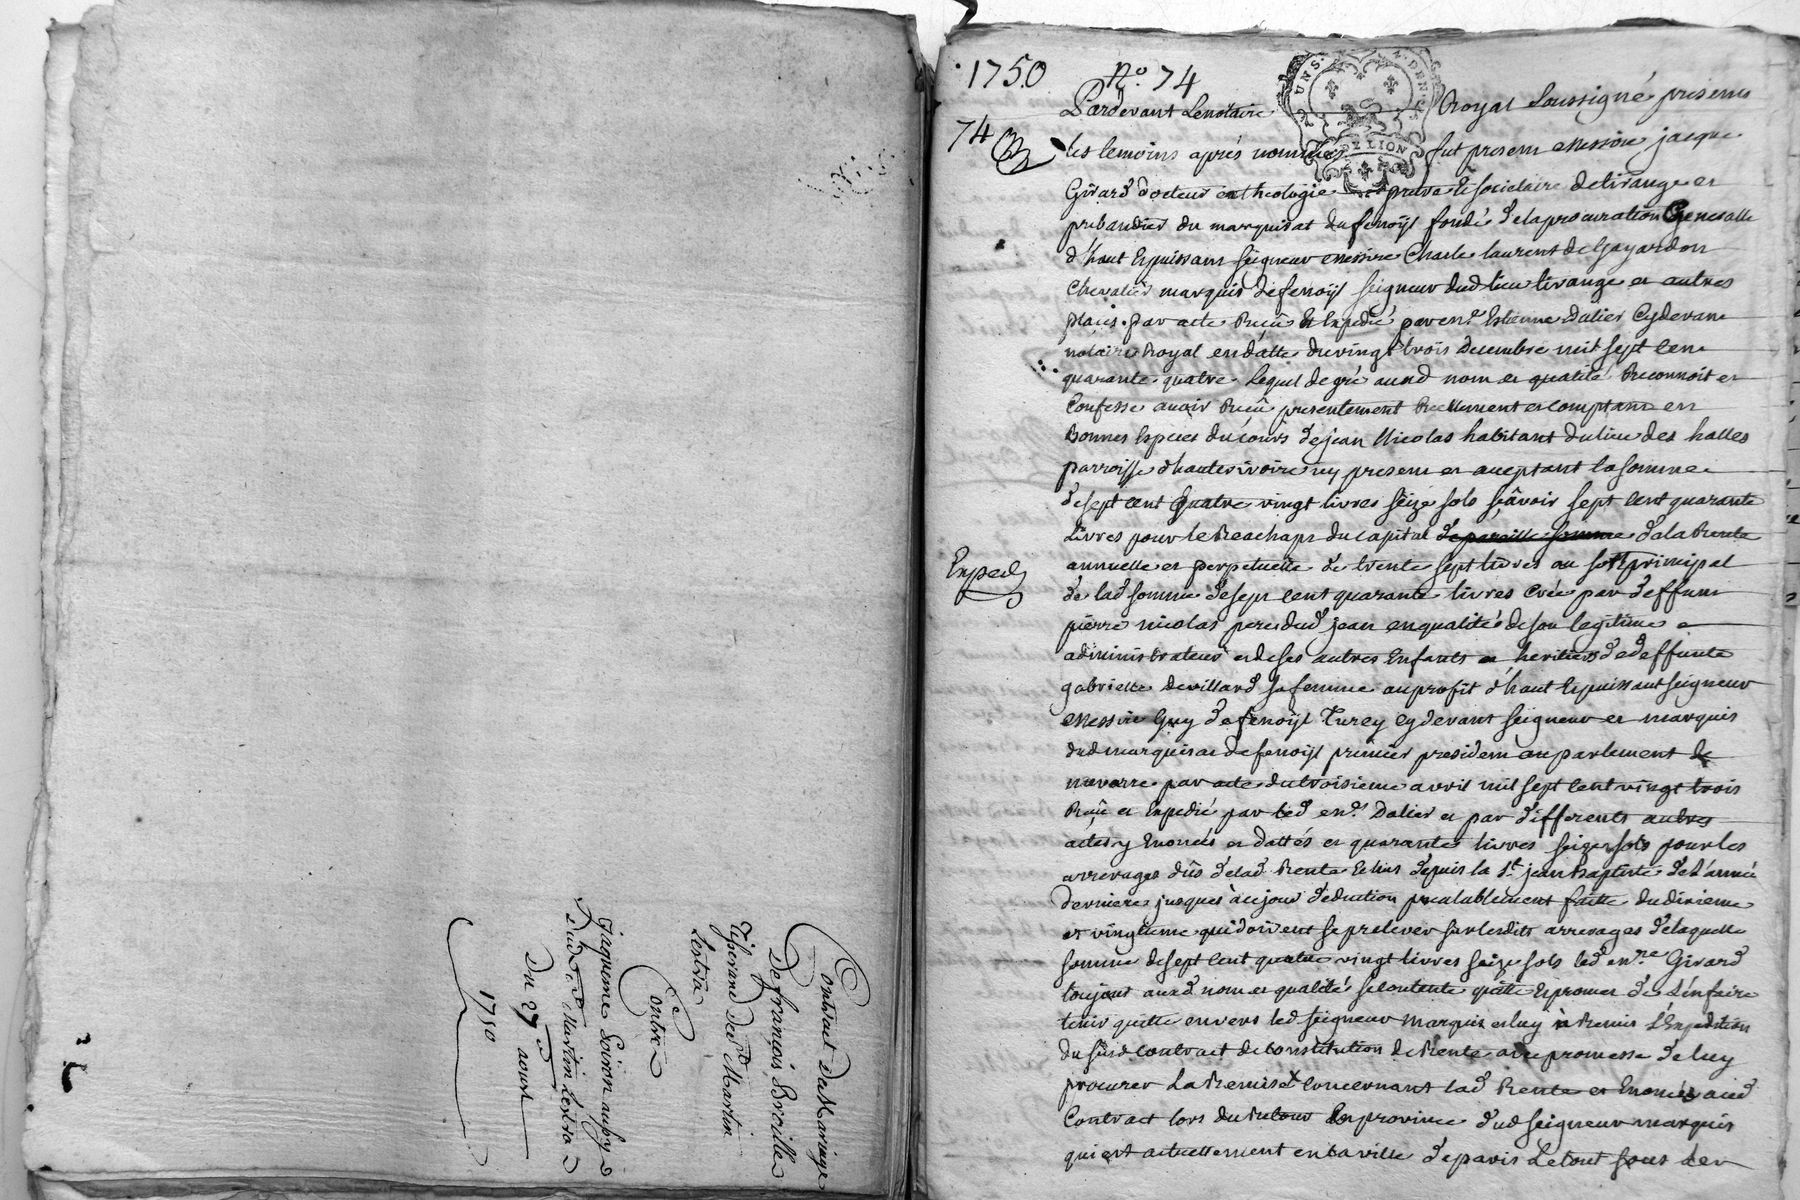 Contract de Mariage
De françois Brioille
Tisserand Dud Martin
Lestra
Contre
Jaqueme Loiron aussy
Du 27 aoust
1750
1750 N.° 74
74
Pardevant Le notaire Royal soussigné presens
les temoins aprés nommés fut present Messire jacque
Girard docteur en theologie pretre et societaire de tirange et
prebandier du marquisat du fenoÿl fondé de la procuration Generalle
d'haut et puissant seigneur Messire Charle laurent de Gayardon
Chevalier marquis de fenoÿl seigneur dud lieu tirange et autres
places par acte Recu et Expedié par en.d Estienne Dalier Cy devant
notaire Royal en datte du vingt trois decembre mil sept cent
quarante quatre Lequel de gré aud nom et qualité Reconnoit et
Confesse avoir Recû presentement Reellement et comptant en
Bonnes Especes du cours de jean Nicolas habitant du lieu des halles
parroisse d'hauterivoire icy present et aceptant la somme
de sept cent quatre vingt livres seize sols sçâvoir sept cent quarante
Livres pour le Reachapt du capital de pareille somme de la Rente
Exped
annuelle et perpetuelle de trente sept livres au sort principal
de lad somme de sept cent quarante livres Créé par deffunt
pierre nicolas pere dud jean en qualité de son legitime
administrateur et de ses autres Enfants et heritiers de deffunte
gabrielle devillard sa femme au profit d'haut et puissant seigneur
Messire Guy de fenoÿl Turey cy devant seigneur et marquis
dud marquisat de fenoÿl premier president au parlement de
navarre par acte du troisieme avril mil sept cent vingt trois
Recu et Expedié par led en.d Dalier et par differents autres
actes y Enoncés et dattés et quarante livres seize sols pour les
arrérages dûs de lad Rente Echus depuis la S.t jean Baptiste de l'année
derniere jusques à ce jour deduction prealablement faitte du dixieme
et vingtieme qui doivent se prelever sur lesdits arrerages de laquelle
somme de sept cent quatre vingt livres seize sols led m.re Girard
toujours aud nom et qualité se contente quitte et promet de l'en faire
tenir quitte envers led seigneur marquis et luy à Remis l'Expedition
du susd contract de constitution de Rente avec promesse de luy
procurer La Remise concernant lad Rente et Enoncés aud
Contract lors du Retour En province dud seigneur marquis
qui est actuellement en la ville de paris Le tout sous les